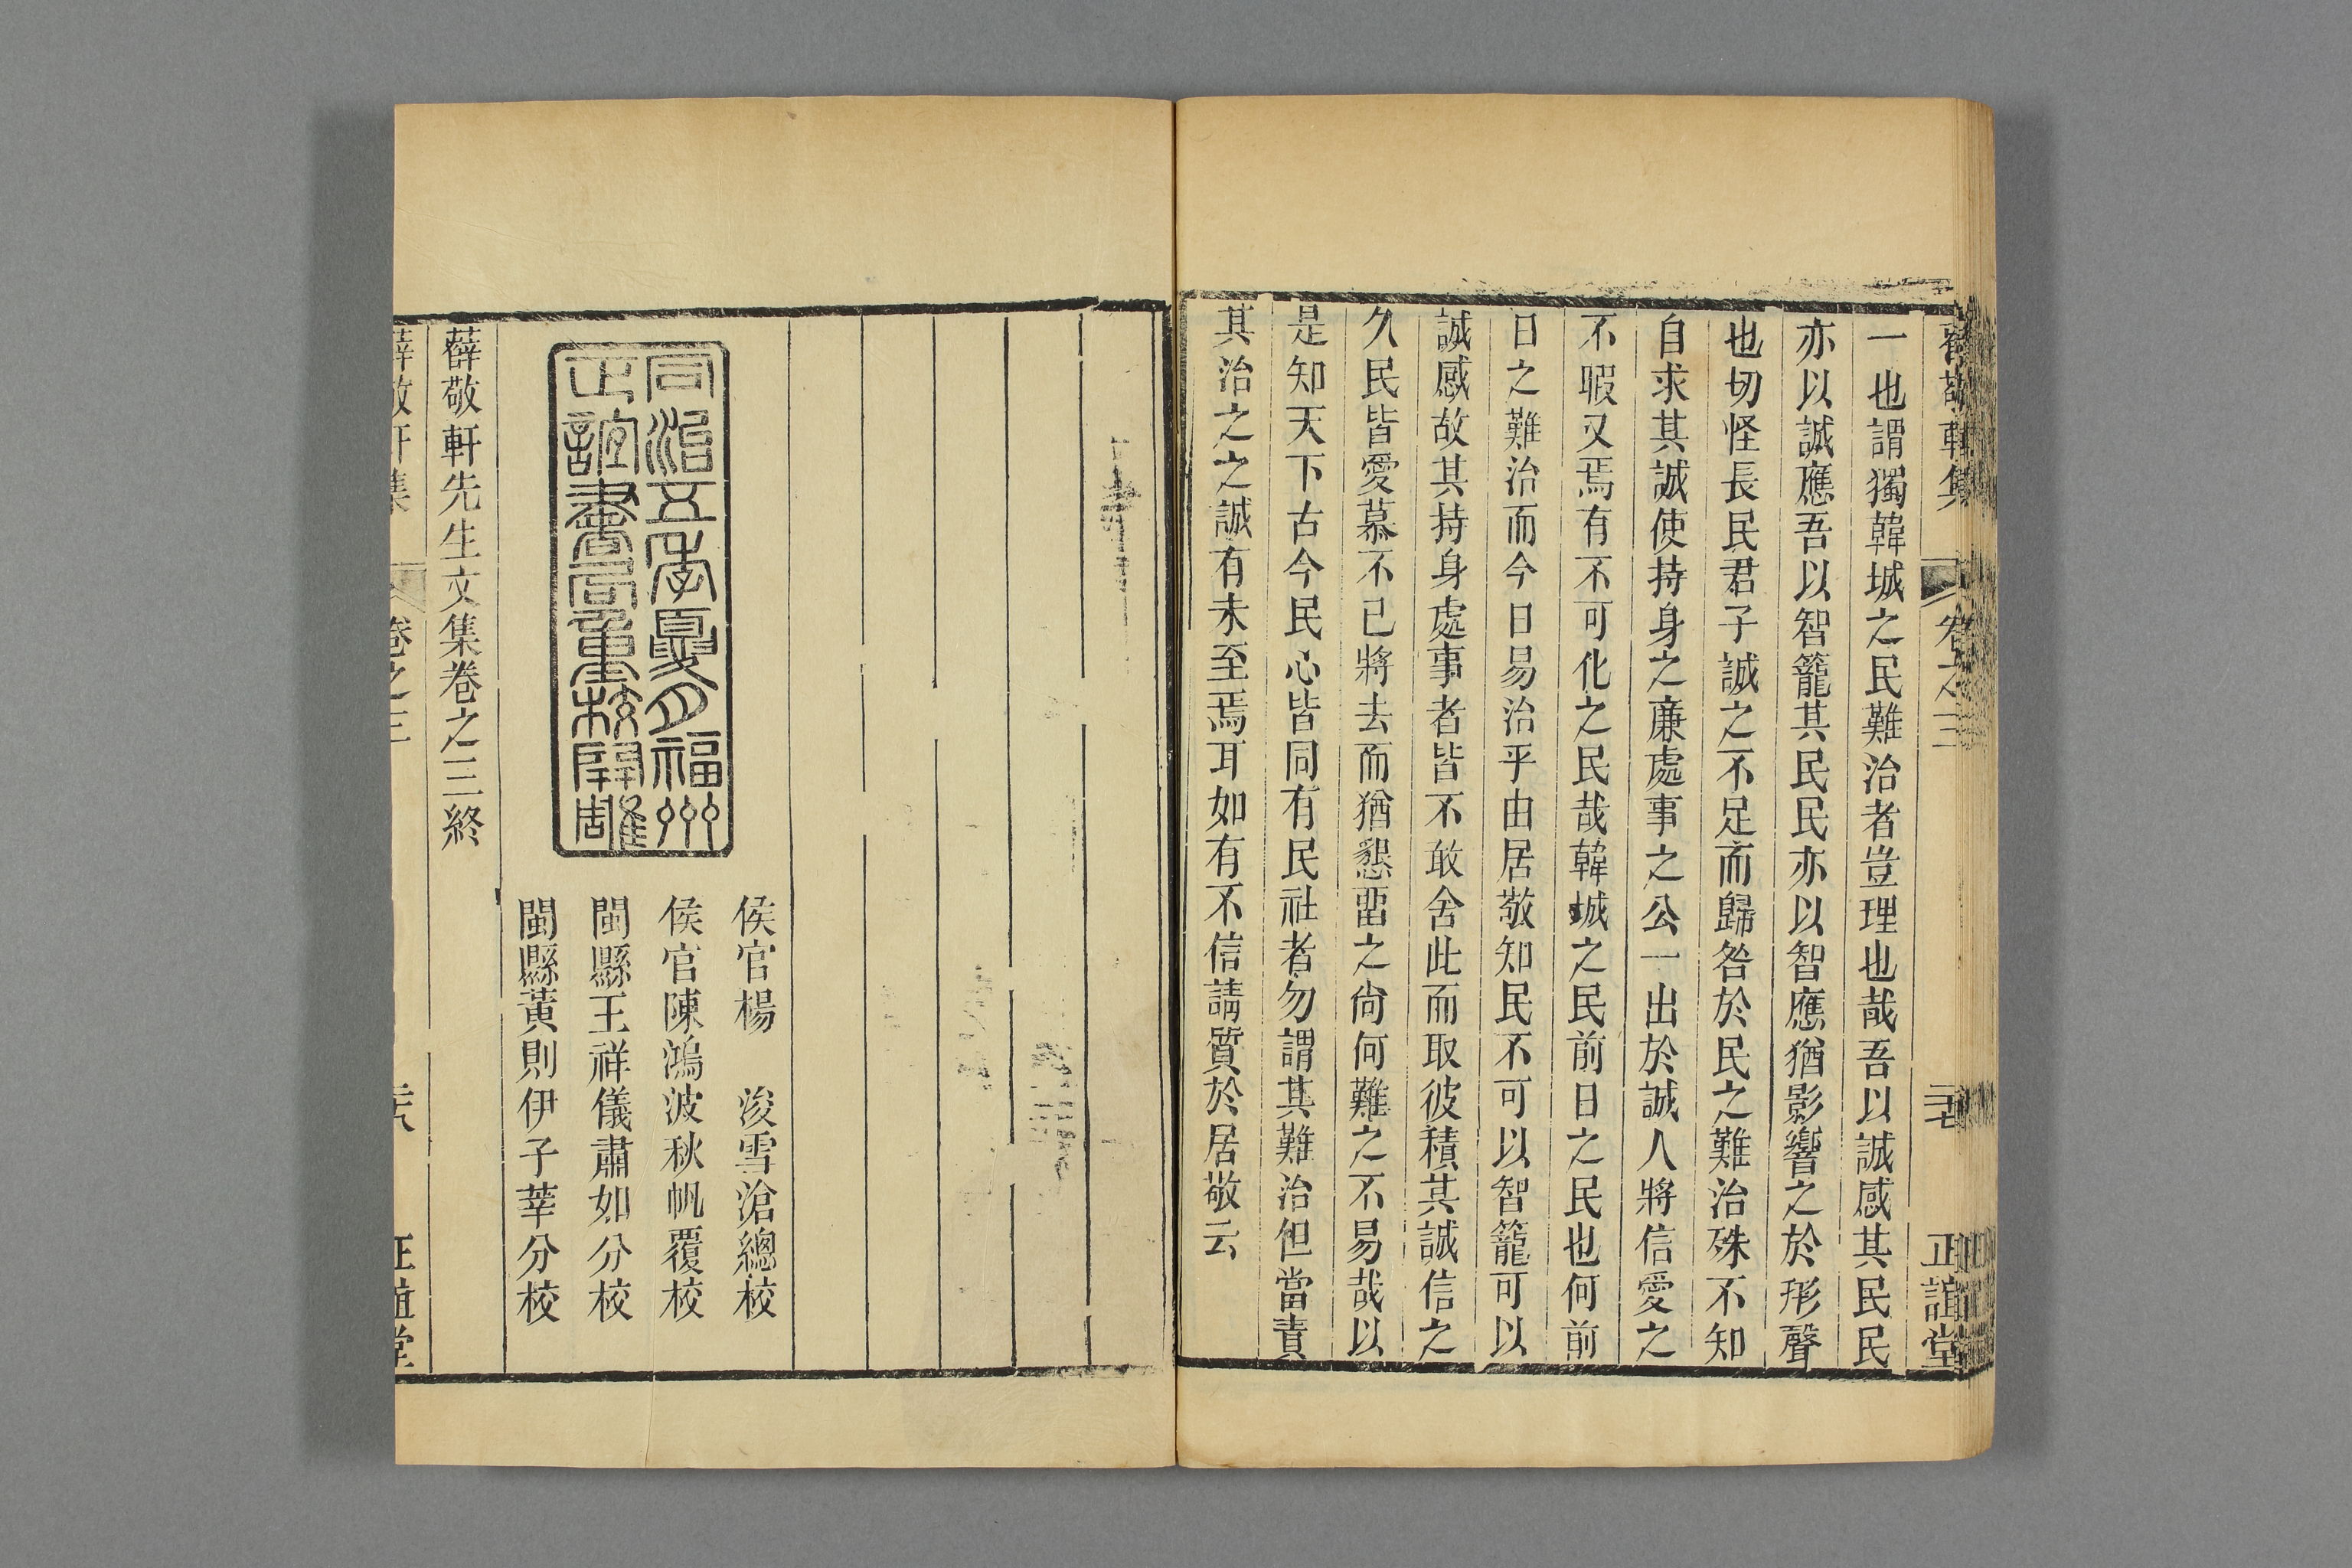 薛敬軒集 卷之三 二十七 正誼堂
一也謂獨韓城之民難治者豈理也哉吾以誠感其民民
亦以誠應吾以智籠其民民亦以智應猶影響之於形聲
也切怪長民君子誠之不足而歸咎於民之難治殊不知
自求其誠使持身之廉處事之公一出於誠人將信愛之
不暇又焉有不可化之民哉韓城之民前日之民也何前
日之難治而今日易治乎由居敬知民不可以智籠可以
誠感故其持身處事者皆不敢舍此而取彼積其誠信之
久民皆愛慕不已將去而猶懇畱之尙何難之不易哉以
是知天下古今民心皆同有民社者勿謂其難治但當責
其治之之誠有未至焉耳如有不信請質於居敬云
侯官楊 浚雪滄總校
侯官陳鴻波秋帆覆校
閩縣王祥儀肅如分校
閩縣黃則伊子莘分校
同治五年夏月福州
正誼書局重校開雕
薛敬軒先生文集卷之三終
薛敬軒集 卷之三 二十八 正誼堂